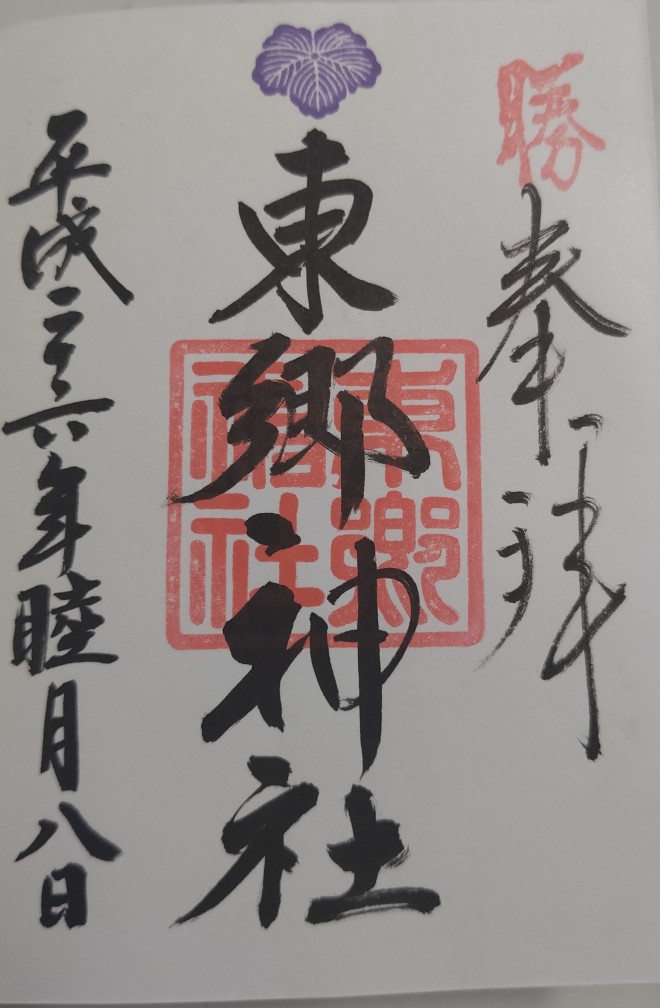 勝
奉拝
東郷神社
東郷神社
平成二十六年睦月八日